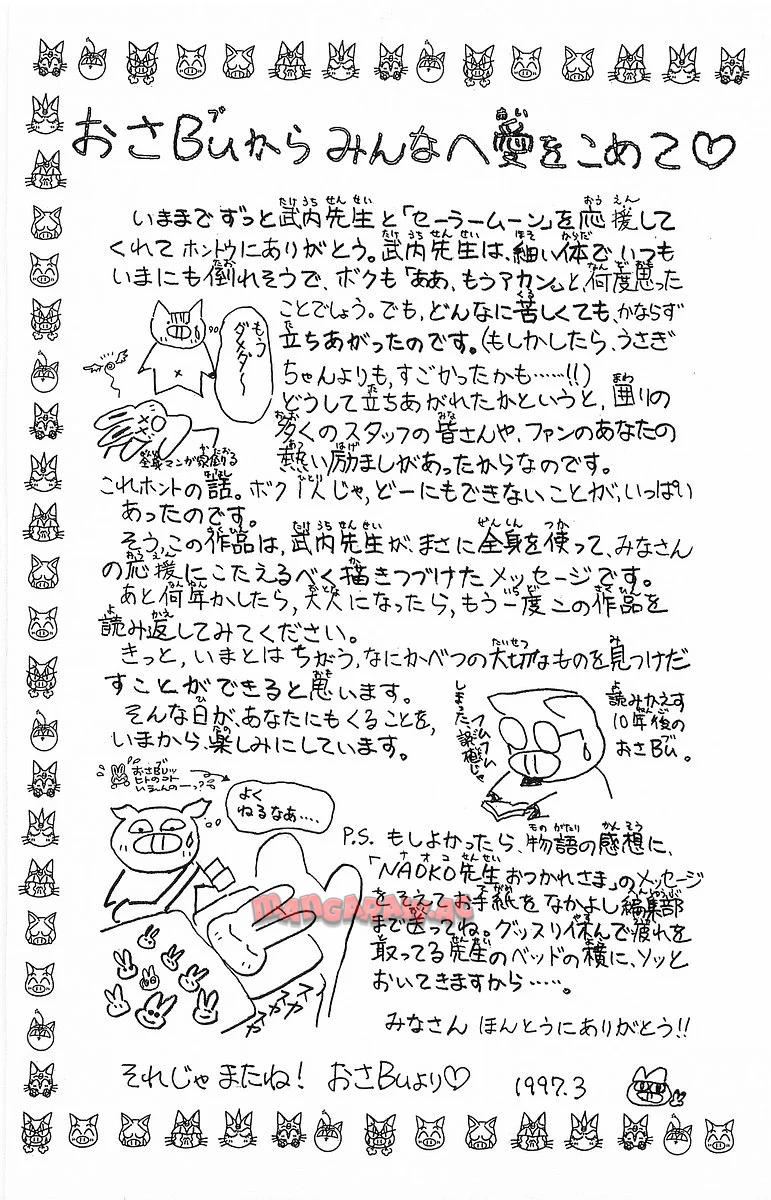 おさBuからみんなへ愛をこめて♡
いままでずっと武内先生と「セーラームーン」を応援して
くれてホントウにありがとう。武内先生は、細い体でいつも
いまにも倒れそうで、ボクも「ああ、もうアカン」と、何度思った
ことでしょう。でも、どんなに苦しくても、かならず
立ちあがったのです。(もしかしたら、うさぎ
ちゃんよりも、すごかったかも……!!)
どうして立ちあがれたかというと、囲りの
多くのスタッフの皆さんや、ファンのあなたの
熱い励ましがあったからなのです。
もう
ダメダ〜
全身マンガ家倒る
これホントの話。ボク1人じゃ、どーにもできないことが、いっぱい
あったのです。
そう、この作品は、武内先生が、まさに全身を使って、みなさん
の応援にこたえるべく描きつづけたメッセージです。
あと何年かしたら、大人になったら、もう一度この作品を
読み返してみてください。
きっと、いまとはちがう、なにかべつの大切なものを見つけだ
すことができると思います。
そんな日が、あなたにもくることを、
いまから、楽しみにしています。
読みかえす
10年後の
おさBu。
フムフム
しまった、誤植じゃ
おさBuッ
ヒトのコト
いえんの一っ?
よく
ねるなあ…
P.S. もしよかったら、物語の感想に、
「NAOKO先生おつかれさま」のメッセージ
をそえてお手紙をなかよし編集部
まで送ってね。グッスリ休んで疲れを
取ってる先生のベッドの横に、ソッと
おいてきますから……。
みなさん ほんとうにありがとう!!
それじゃ またね! おさBuより♡ 1997.3
MANGARAW.AC